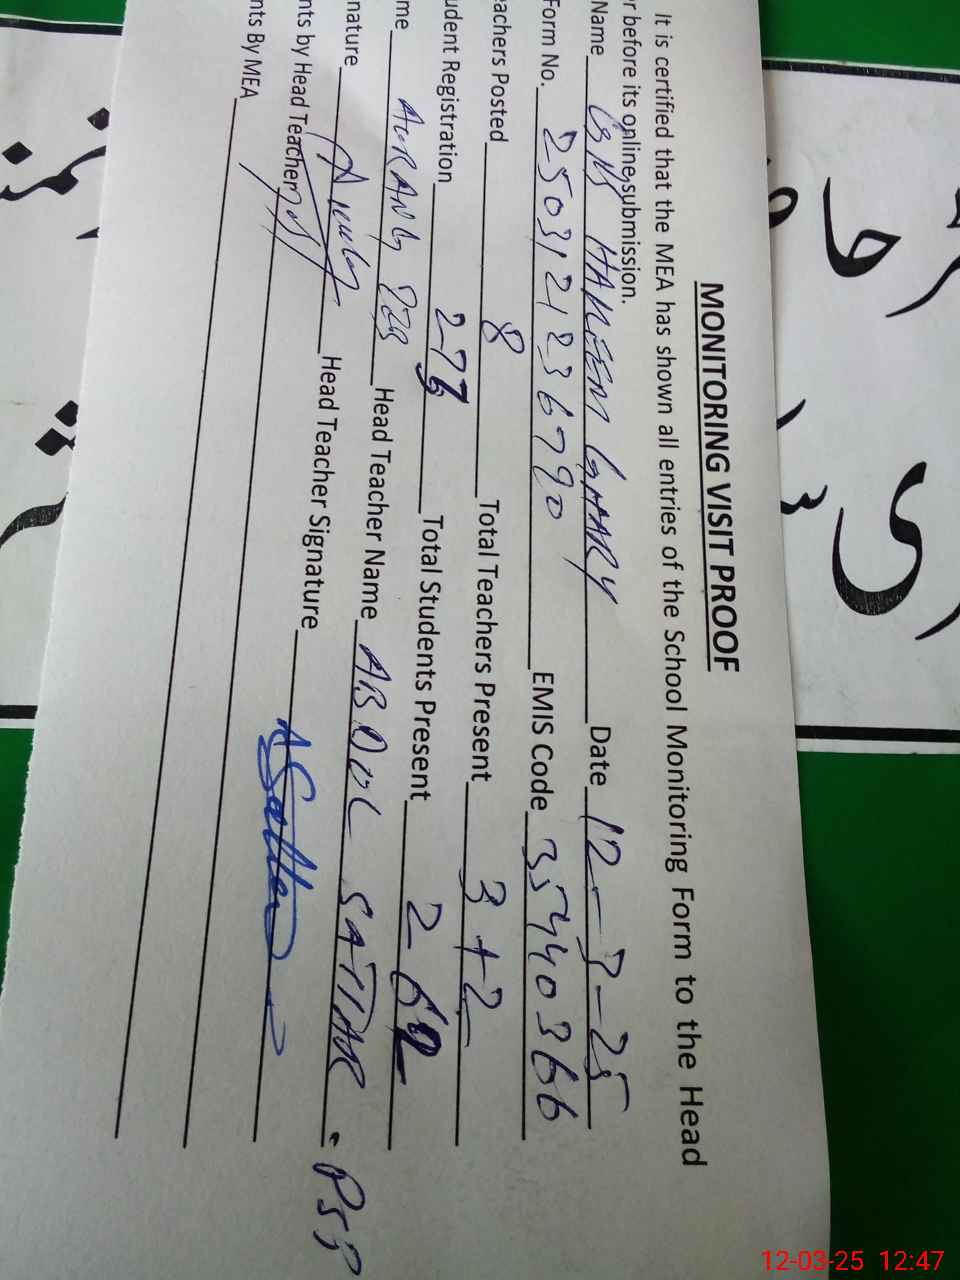 MONITORING VISIT PROOF
It is certified that the MEA has shown all entries of the School Monitoring Form to the Head
r before its online submission.
Name HAKEEM GHARY Date 12-3-25
Form No. EMIS Code 35440366
eachers Posted 8 Total Teachers Present 3+2
udent Registration Total Students Present 262
me AURANG Head Teacher Name ABDUL SATTAR. PST
nature Head Teacher Signature ASattar
nts by Head Teacher
nts By MEA
12-03-25 12:47